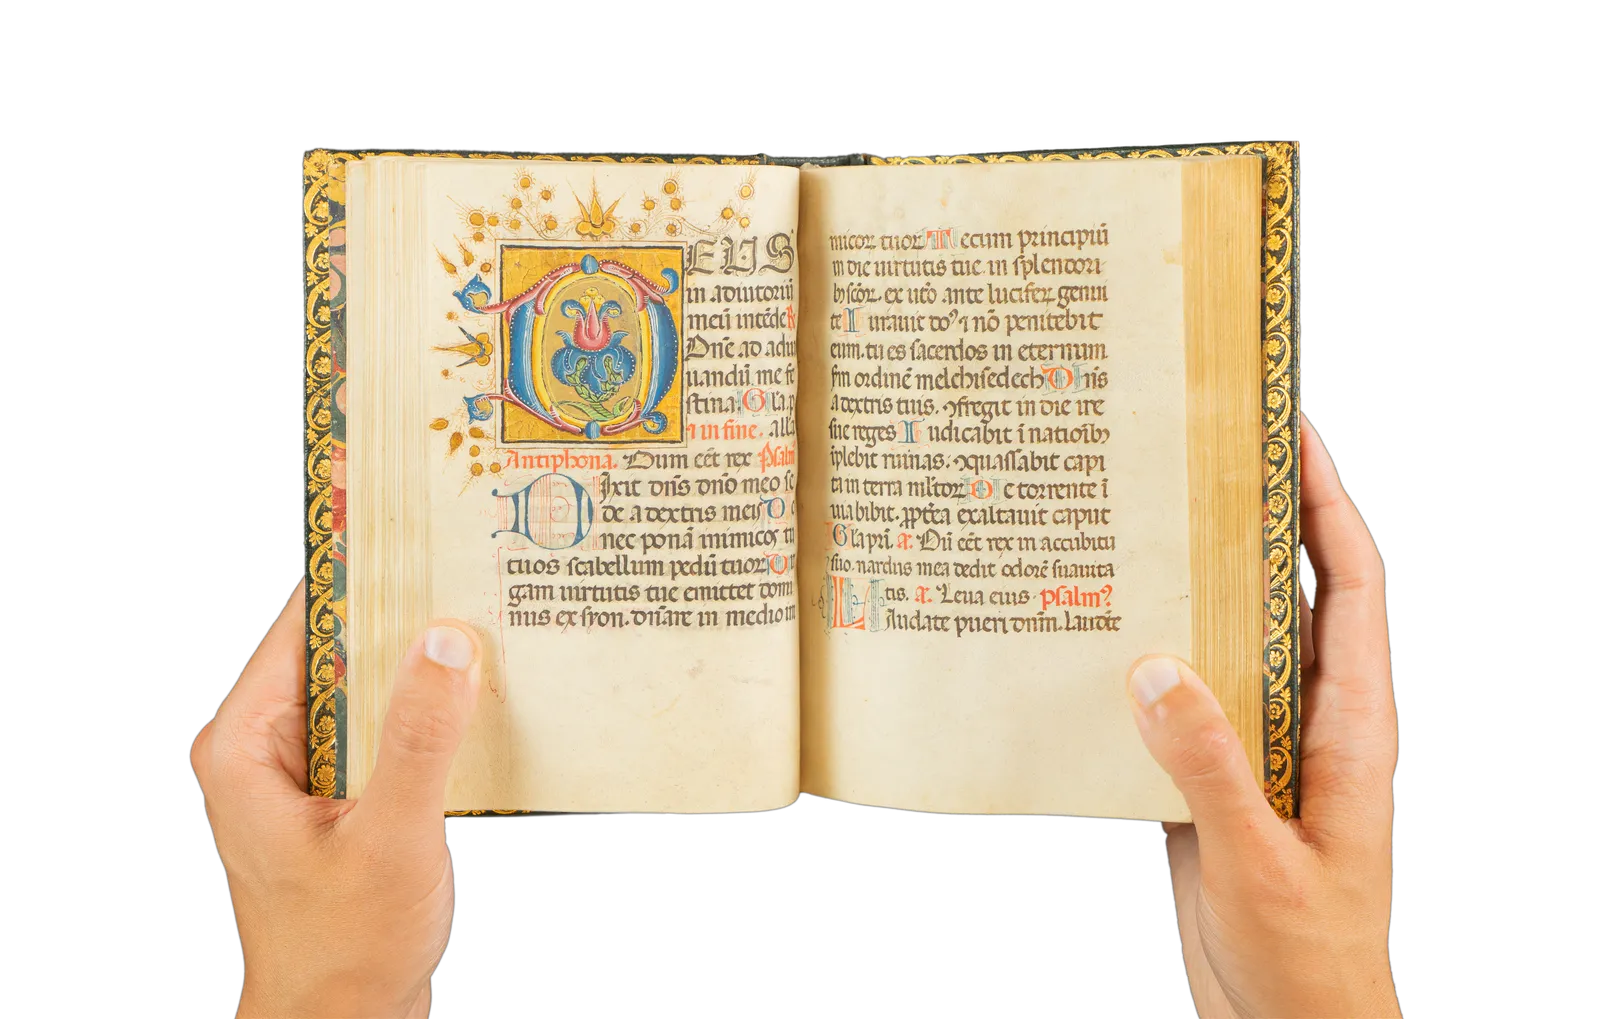 DEUS
in adiutoriū
meū intēde R
Dn̄e ad adiu
uandū me fe
stina Gl'a p
⁊ in fine. all'a
Antiphona. Dum eēt rex Psalm
Dixit dn̄s dn̄o meo se
de a dextris meis D e
nec ponā inimicos tu
tuos scabellum pedū tuoꝝ V ir
gam uirtutis tue emittet domi
nus ex syon. dn̄are in medio in
micoꝝ tuoꝝ T ecum principiū
in die uirtutis tue. in splendori
bꝰ scōꝝ. ex utō ante lucifeꝝ genui
te I urauit do᷒ ⁊ nō penitebit
eum. tu es sacerdos in eternum
sm̄ ordinē melchisedech D n̄s
a dextris tuis. ꝯfregit in die ire
sue reges I udicabit ī natioībꝫ
īplebit ruinas. ꝯquassabit capi
ta in terra multoꝝ D e torrente ī
uia bibit. ꝓpt̄ea exaltauit caput
Gl'a pr̄i. a. Dū eēt rex in accubitu
suo. nardus mea dedit odorē suauita
tis. a. Leua eius Psalm᷒
Laudate pueri dn̄m. laudate